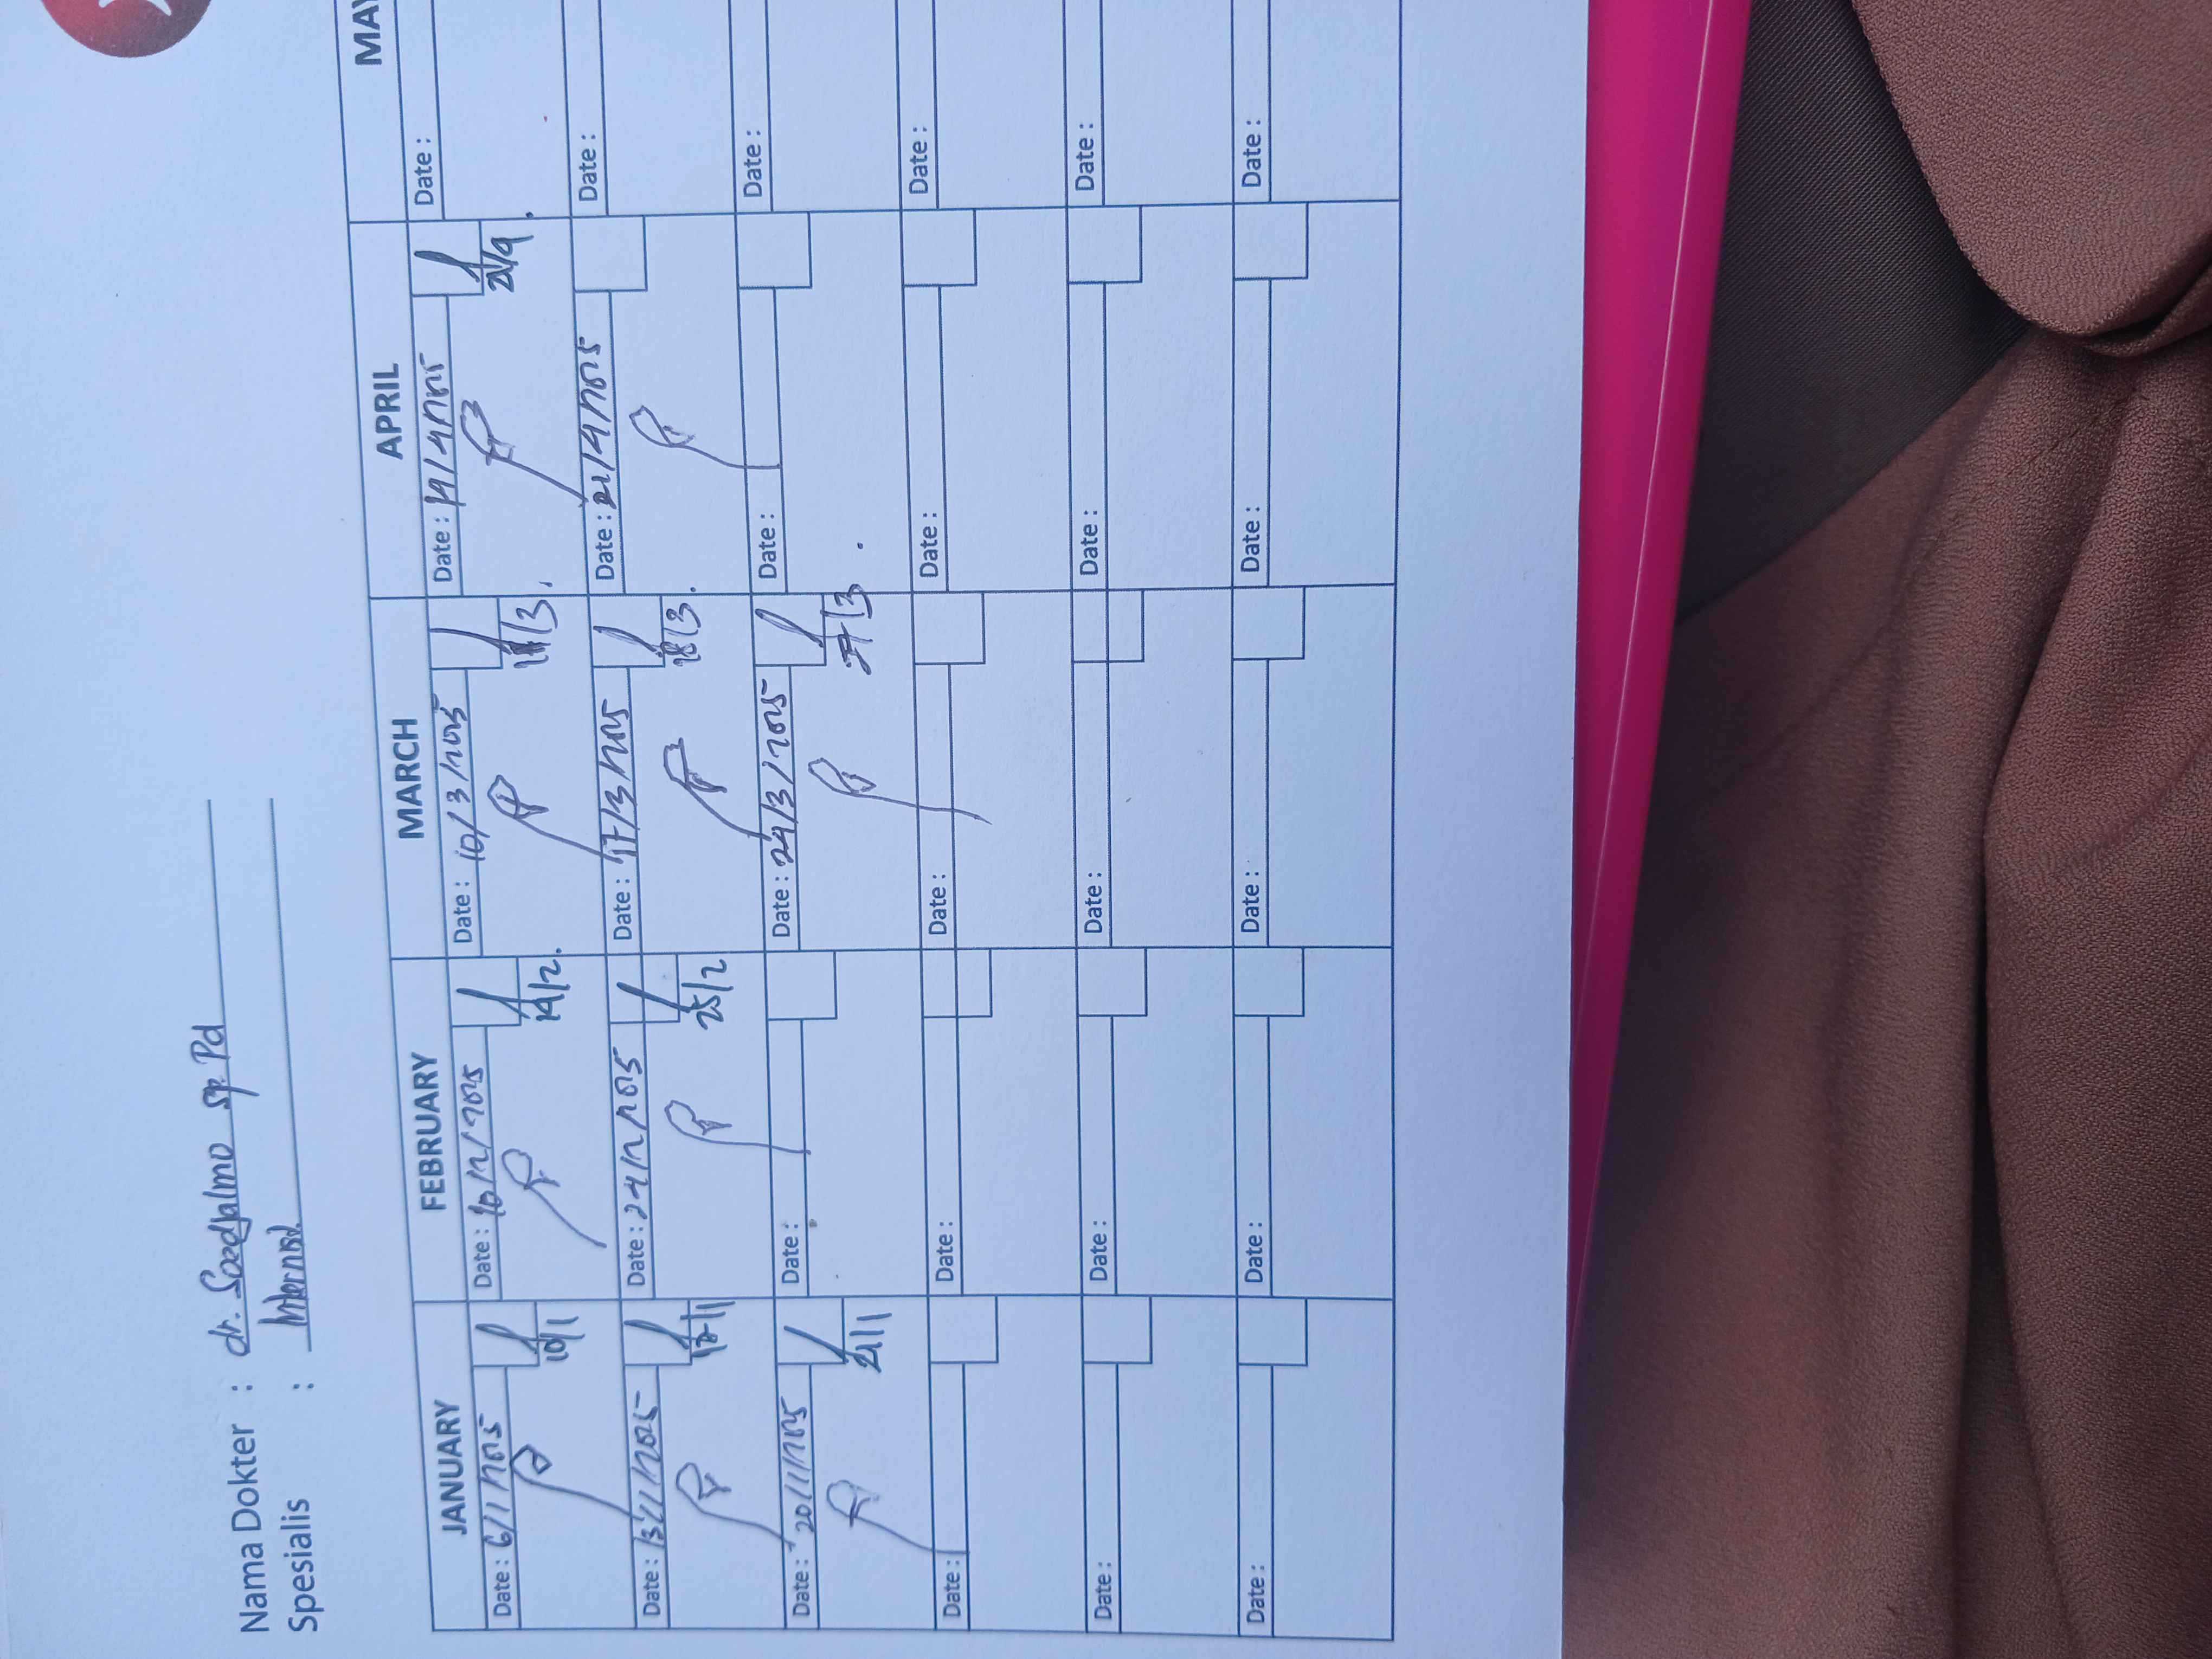 Nama Dokter : dr. Soedjalmo Sp. Pd
Spesialis : Internist
JANUARY FEBRUARY MARCH APRIL MAY
Date : 6/1/2025 Date : 10/2/2025 Date : 10/3/2025 Date : 14/4/2025 Date :
10/1 14/2 11/3. 21/4.
Date : 13/1/2025 Date : 24/2/2025 Date : 17/3/2025 Date : 21/4/2025 Date :
17/1 25/2 18/3.
Date : 20/1/2025 Date : Date : 24/3/2025 Date : Date :
21/1 27/3.
Date : Date : Date : Date : Date :
Date : Date : Date : Date : Date :
Date : Date : Date : Date : Date :